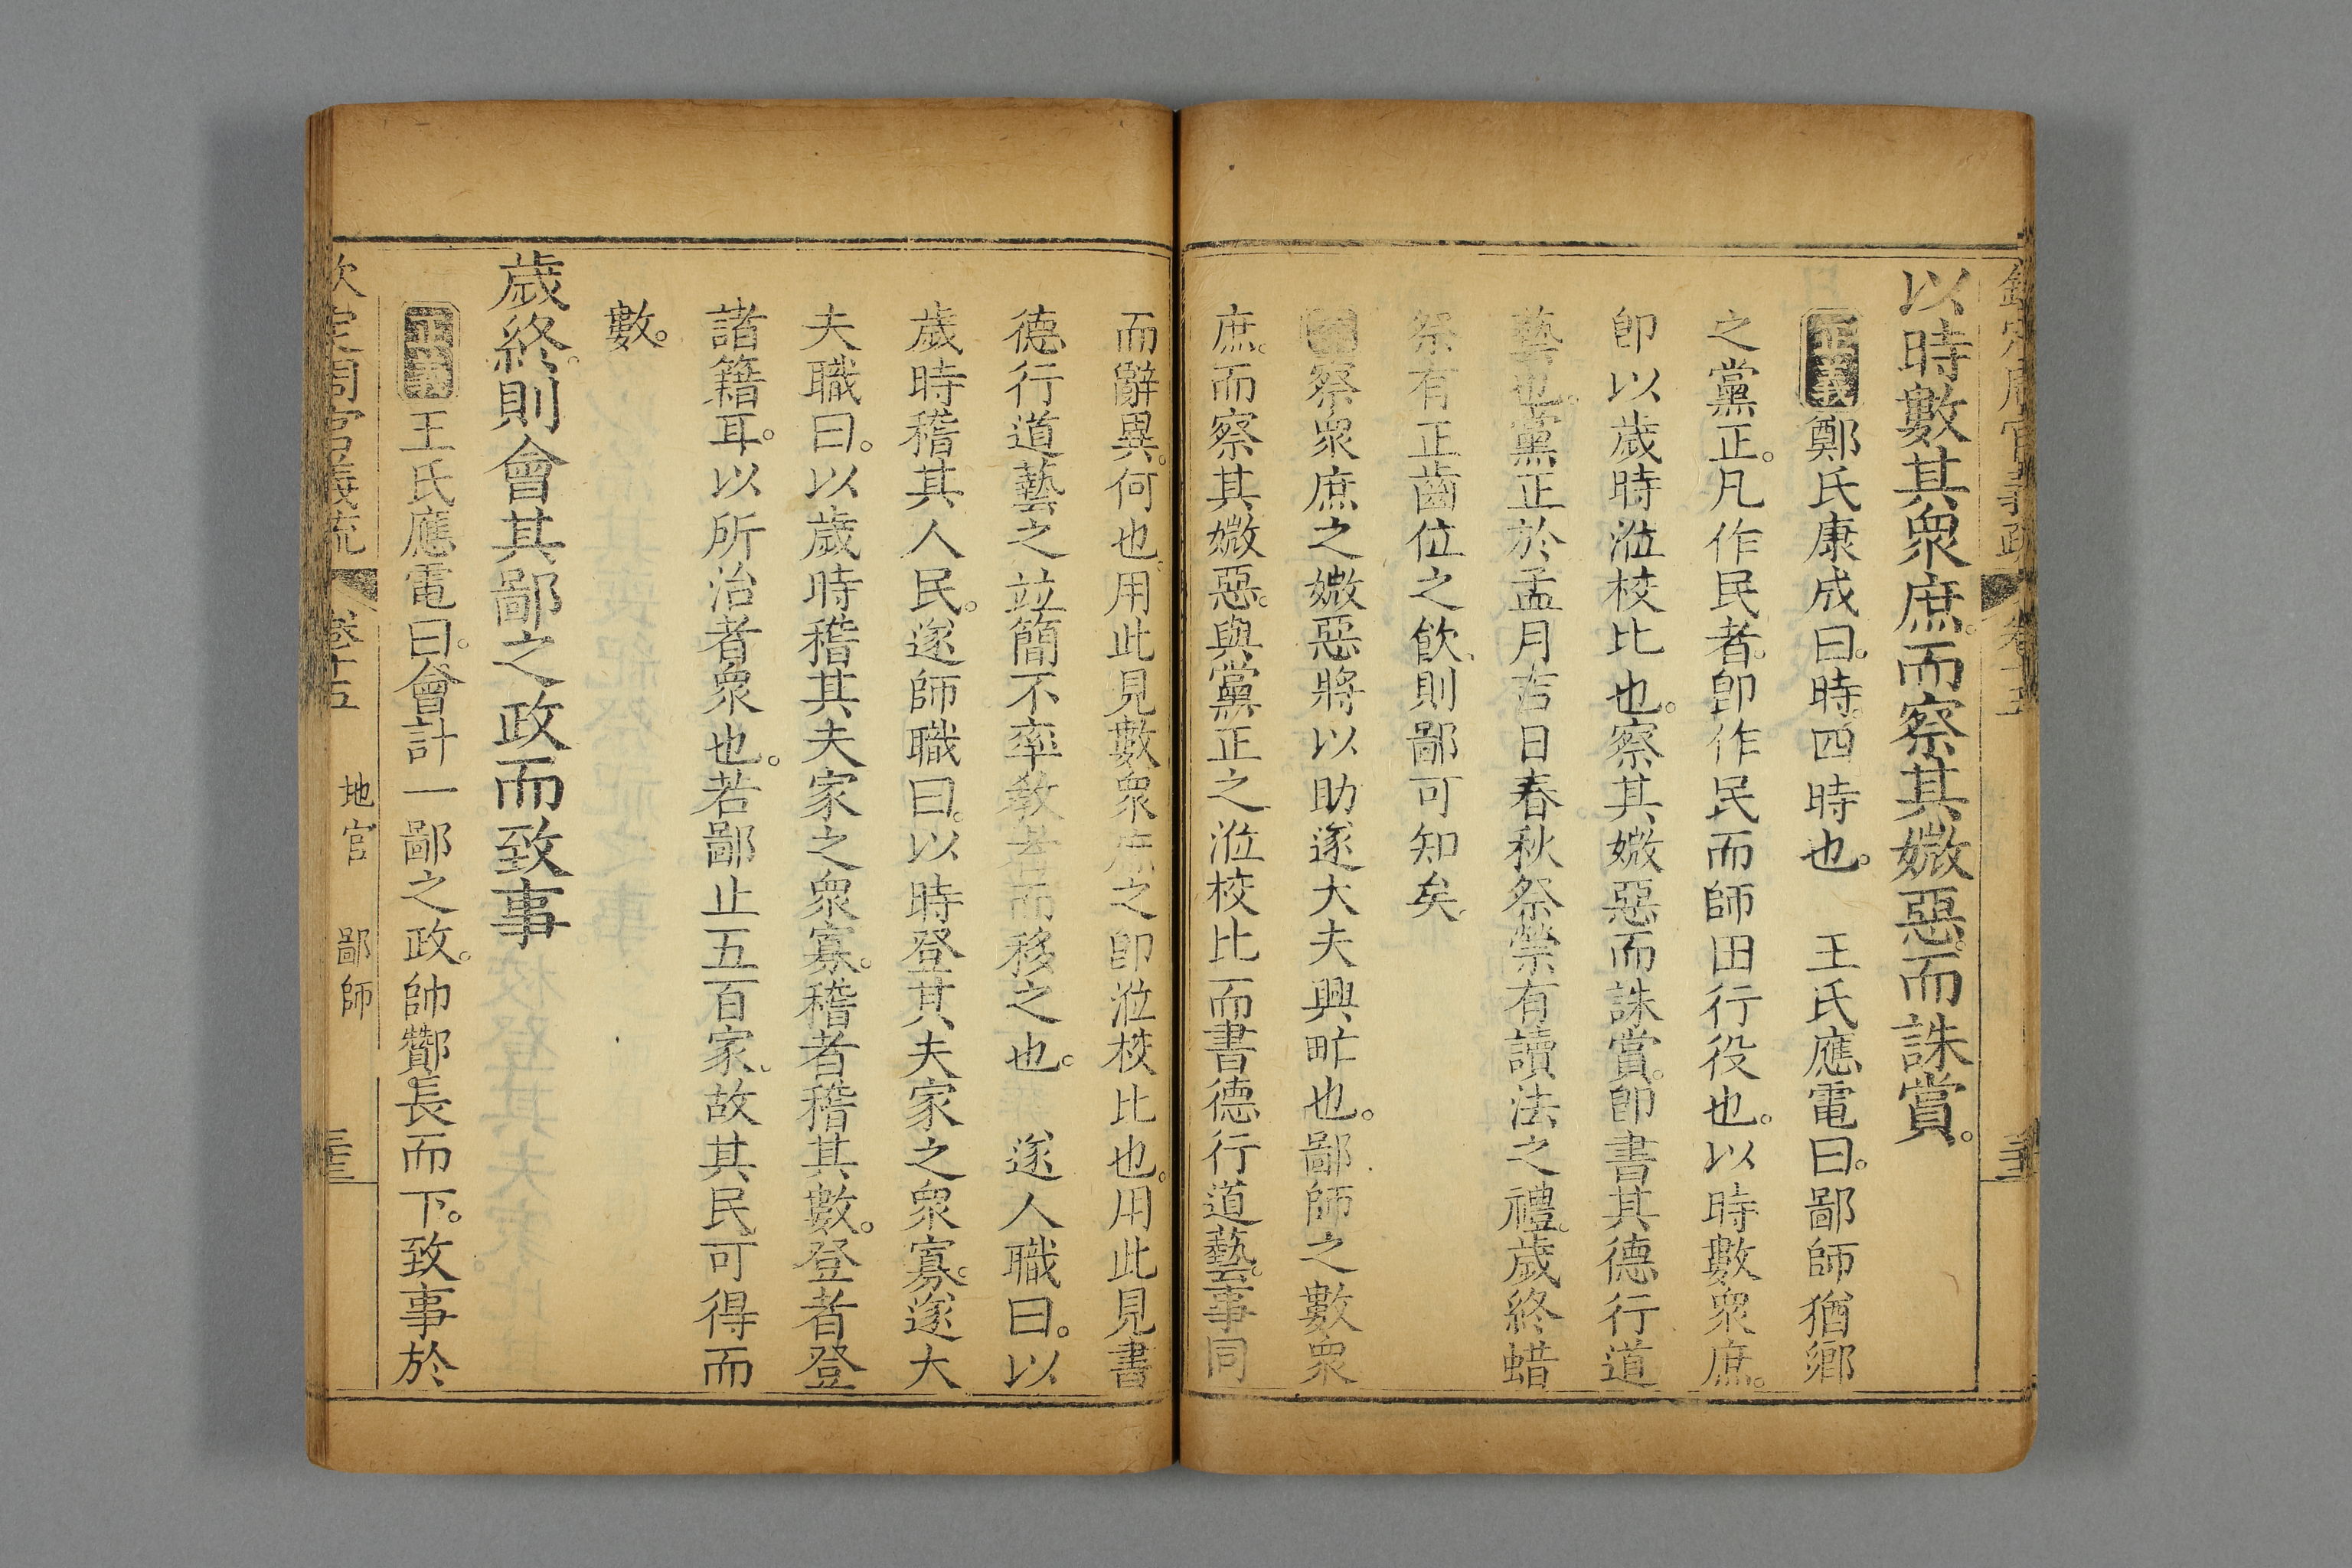 以時數其衆庶。而察其媺惡。而誅賞。
正義鄭氏康成曰。時。四時也。　王氏應電曰。鄙師猶鄉
之黨正。凡作民者。卽作民而師田行役也。以時數衆庶。
卽以歲時涖校比也。察其媺惡而誅賞。卽書其德行道
藝也。黨正於孟月吉日春秋祭禜有讀法之禮。歲終蜡
祭有正齒位之飲、則鄙可知矣。
察衆庶之媺惡將以助遂大夫興甿也。鄙師之數衆
庶。而察其媺惡。與黨正之涖校比而書德行道藝。事同
而辭異。何也。用此見數衆庶之卽涖校比也。用此見書
德行道藝之竝簡不率教者而移之也。　遂人職曰。以
歲時稽其人民。遂師職曰。以時登其夫家之衆寡。遂大
夫職曰。以歲時稽其夫家之衆寡。稽者稽其數。登者登
諸籍耳。以所治者衆也。若鄙止五百家、故其民可得而
數。
歲終。則會其鄙之政而致事
正義王氏應電曰。會計一鄙之政。帥酇長而下。致事於
欽定周官義疏　卷十五　地官　鄙師